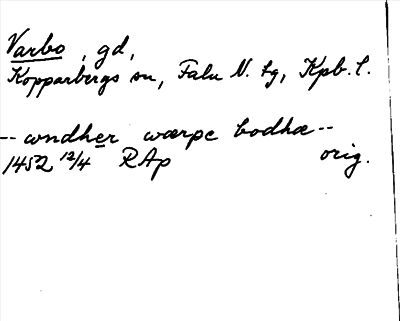 Varbo, gd,
Kopparbergs sn, Falu N. tg, Kpb. l.
-- wndher wærpe bodhæ --
1452 12/4 RAp orig.